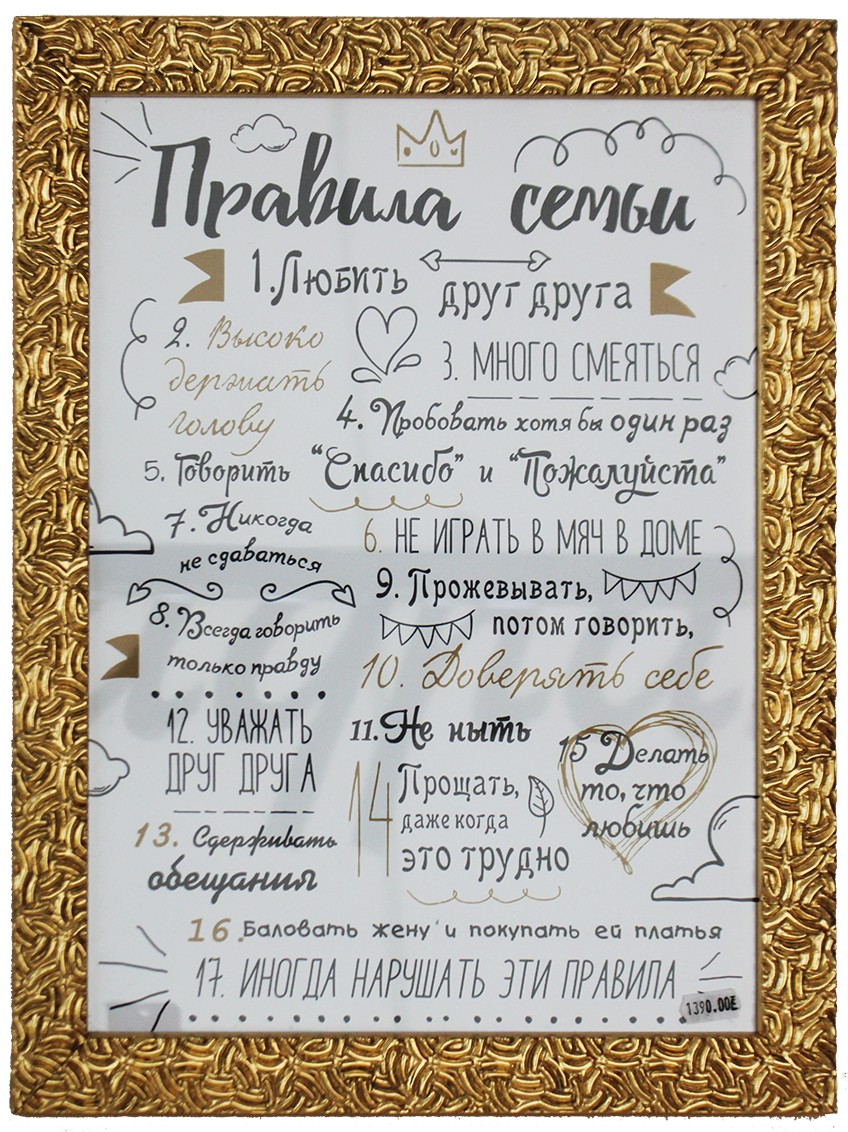 Правила семьи
1. Любить друг друга
2. Высоко
держать
голову
3. МНОГО СМЕЯТЬСЯ
4. Пробовать хотя бы один раз
5. Говорить "Спасибо" и "Пожалуйста"
6. НЕ ИГРАТЬ В МЯЧ В ДОМЕ
7. Никогда
не сдаваться
8. Всегда говорить
только правду
9. Прожевывать,
потом говорить,
10. Доверять себе
11. Не ныть
12. УВАЖАТЬ
ДРУГ ДРУГА
13. Сдерживать
обещания
14 Прощать,
даже когда
это трудно
15 Делать
то, что
любишь
16. Баловать жену и покупать ей платья
17. ИНОГДА НАРУШАТЬ ЭТИ ПРАВИЛА
1390.00